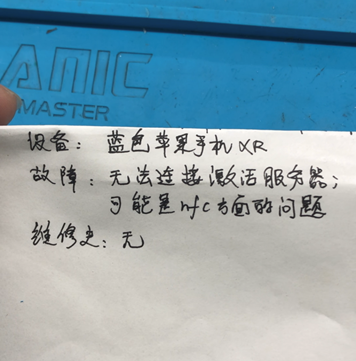 ANIC
MASTER
设备：蓝色苹果手机XR
故障：无法连接激活服务器；
可能是nfc方面的问题
维修史：无